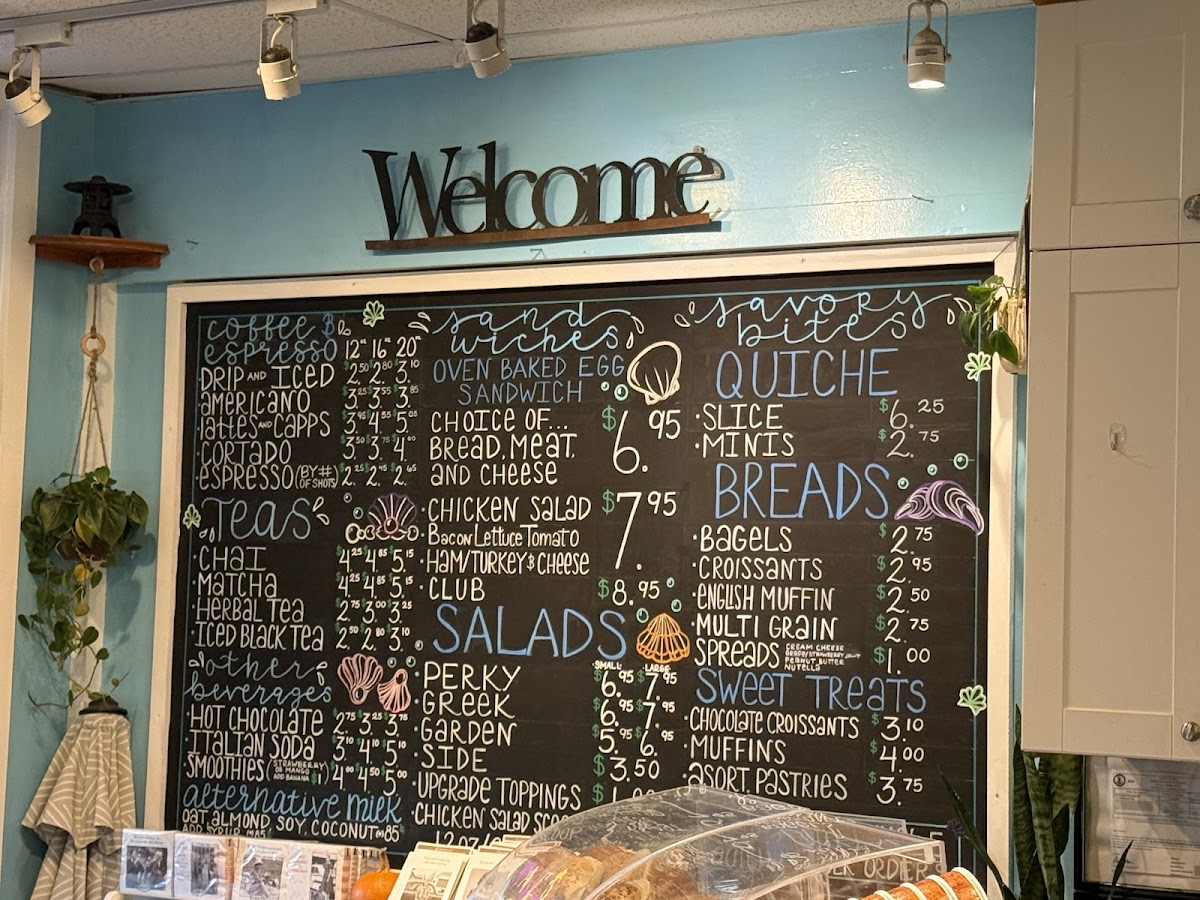 Welcome
coffee &
espresso 12oz 16oz 20oz
DRIP AND ICED $2.50 $2.80 $3.10
AMERICANO $3.25 $3.55 $3.85
lattes AND CAPPS $3.95 $4.55 $5.05
CORTADO $3.50 $3.75 $4.00
espresso (BY # OF SHOTS) $2.25 $2.45 $2.65
TEAS
CHAI $4.25 $4.85 $5.15
MATCHA $4.25 $4.85 $5.15
HERBAL TEA $2.75 $3.00 $3.25
ICED BLACK TEA $2.50 $2.80 $3.10
other
beverages
HOT CHOCOLATE $2.75 $3.25 $3.75
ITALIAN SODA $3.10 $4.10 $5.10
SMOOTHIES (STRAWBERRY OR MANGO ADD BANANA $1) $4.00 $4.50 $5.00
alternative milk
OAT, ALMOND, SOY, COCONUT (+).85
ADD SYRUP (+).85
sand
wiches
OVEN BAKED EGG
SANDWICH
CHOICE OF... $6.95
BREAD, MEAT,
AND CHEESE
CHICKEN SALAD $7.95
Bacon Lettuce Tomato
HAM/TURKEY & CHEESE
CLUB $8.95
SALADS
SMALL LARGE
PERKY $6.95 $7.95
GREEK $6.95 $7.95
GARDEN $5.95 $6.95
SIDE $3.50
UPGRADE TOPPINGS
CHICKEN SALAD
savory
bites
QUICHE
SLICE $6.25
MINIS $2.75
BREADS
BAGELS $2.75
CROISSANTS $2.95
ENGLISH MUFFIN $2.50
MULTI GRAIN $2.75
SPREADS CREAM CHEESE $1.00
PEANUT BUTTER
NUTELLA
SWEET TREATS
CHOCOLATE CROISSANTS $3.10
MUFFINS $4.00
ASORT. PASTRIES $3.75